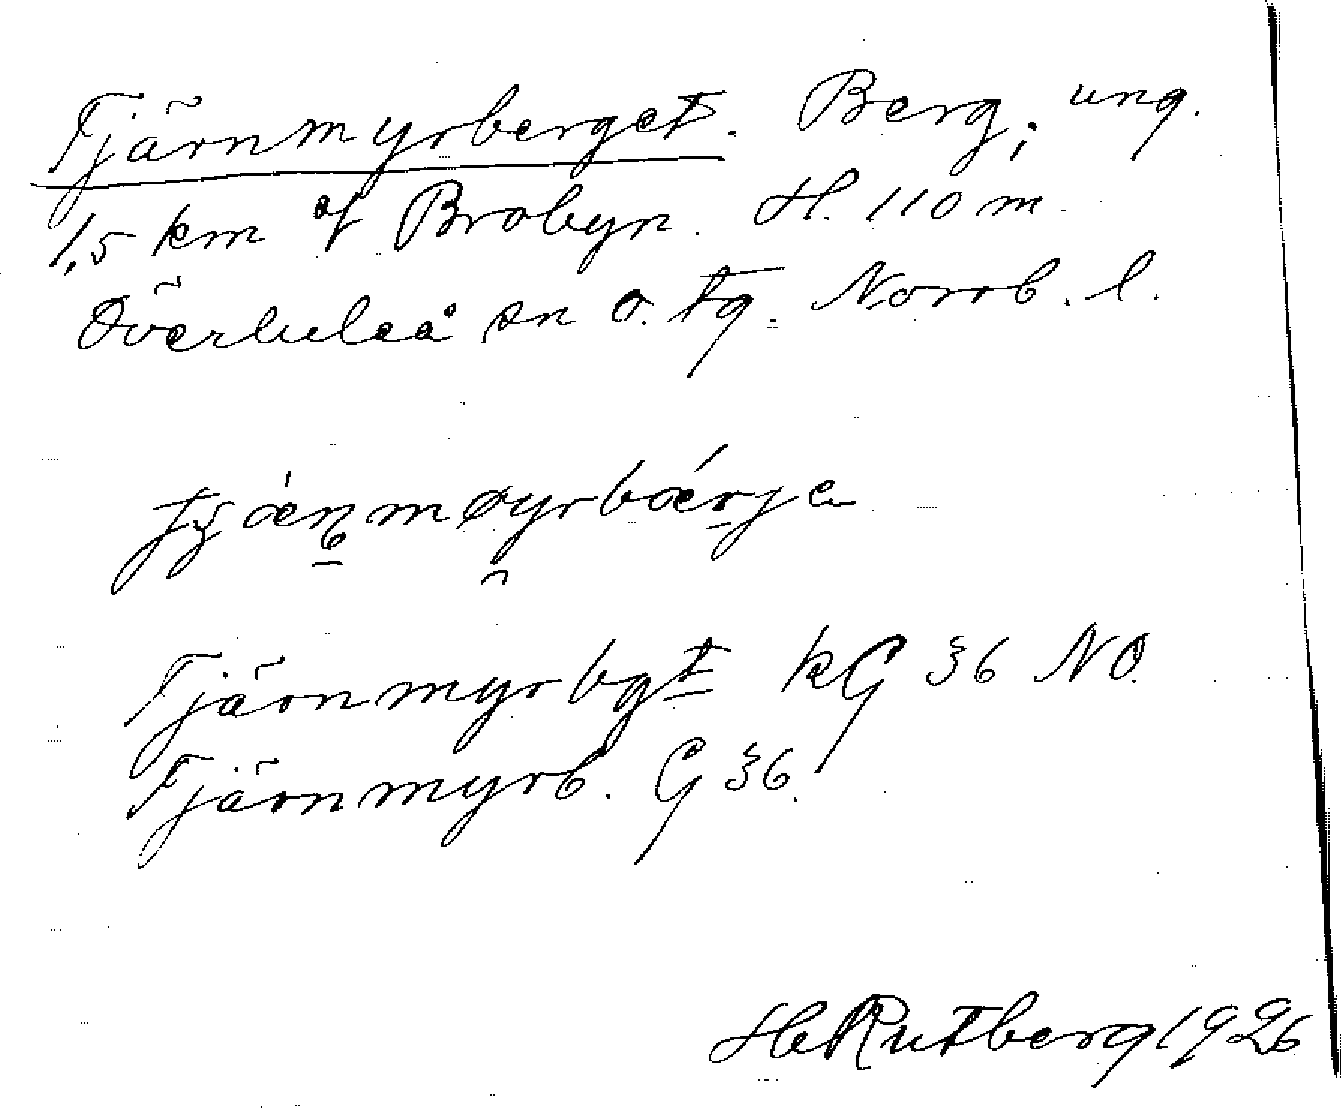 Tjärnmyrberget. Berg, ung.
1,5 km af Brobyn. H. 110 m.
Överluleå sn o. tg. Norrb. l.
Tjärnmyrbgt kG 36 NO
Tjärnmyrb. G 36.
H Rutberg 1926